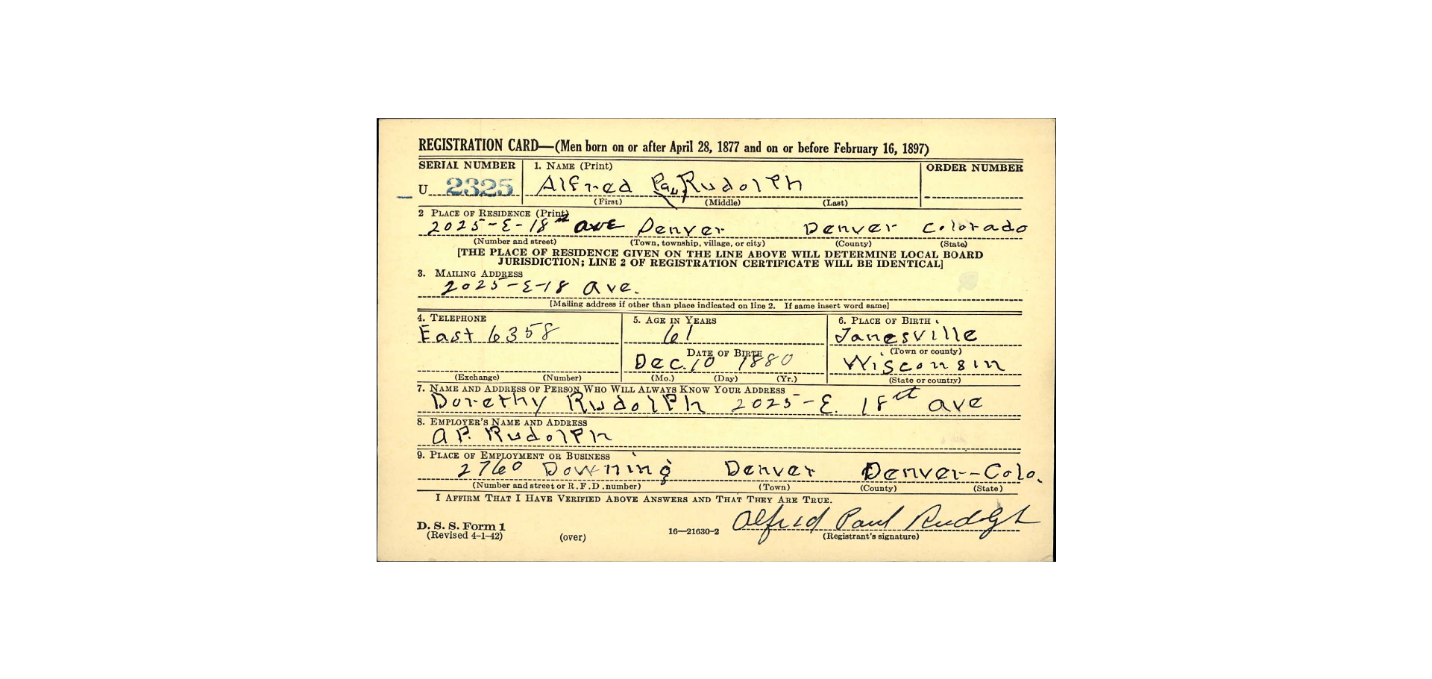 REGISTRATION CARD—(Men born on or after April 28, 1877 and on or before February 16, 1897)
SERIAL NUMBER 1. NAME (Print) ORDER NUMBER
U 2325 Alfred Paul Rudolph
(First) (Middle) (Last)
2 PLACE OF RESIDENCE (Print)
2025-E-18th ave Denver Denver Colorado
(Number and street) (Town, township, village, or city) (County) (State)
[THE PLACE OF RESIDENCE GIVEN ON THE LINE ABOVE WILL DETERMINE LOCAL BOARD
JURISDICTION; LINE 2 OF REGISTRATION CERTIFICATE WILL BE IDENTICAL]
3. MAILING ADDRESS
2025-E-18 Ave.
[Mailing address if other than place indicated on line 2. If same insert word same]
4. TELEPHONE 5. AGE IN YEARS 6. PLACE OF BIRTH
East 6358 61 Janesville
DATE OF BIRTH (Town or county)
Dec. 10 1880 Wisconsin
(Exchange) (Number) (Mo.) (Day) (Yr.) (State or country)
7. NAME AND ADDRESS OF PERSON WHO WILL ALWAYS KNOW YOUR ADDRESS
Dorethy Rudolph 2025-E. 18th ave
8. EMPLOYER'S NAME AND ADDRESS
A P. Rudolph
9. PLACE OF EMPLOYMENT OR BUSINESS
2760 Downing Denver Denver-Colo.
(Number and street or R. F. D. number) (Town) (County) (State)
I AFFIRM THAT I HAVE VERIFIED ABOVE ANSWERS AND THAT THEY ARE TRUE.
Alfred Paul Rudolph
D. S. S. Form 1
(Revised 4-1-42) (over) 16—21630-2 (Registrant's signature)